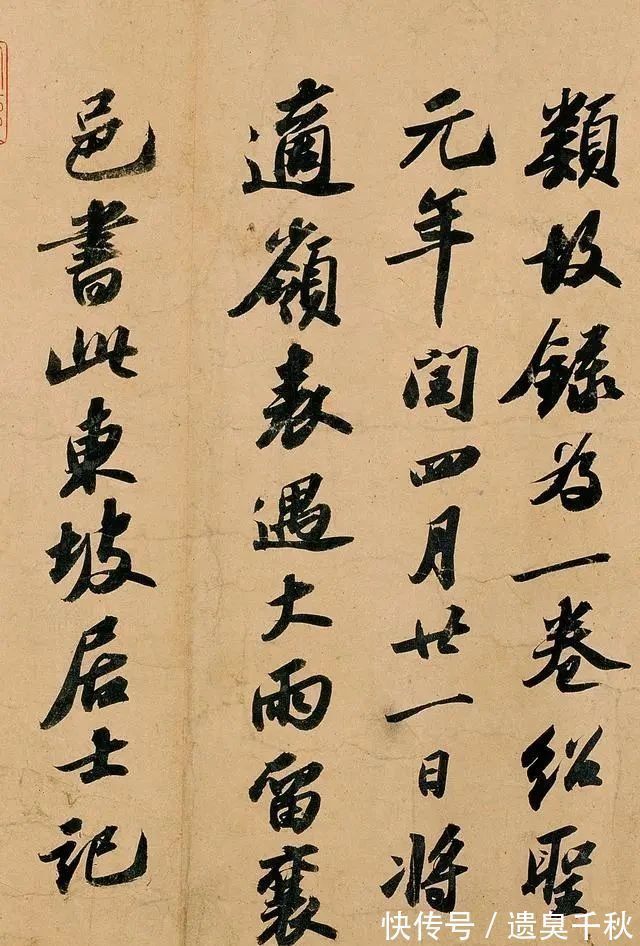 類故録為一卷紹聖
元年閏四月廿一日將
適嶺表遇大雨留襄
邑書此東坡居士記
快传号/遗臭千秋